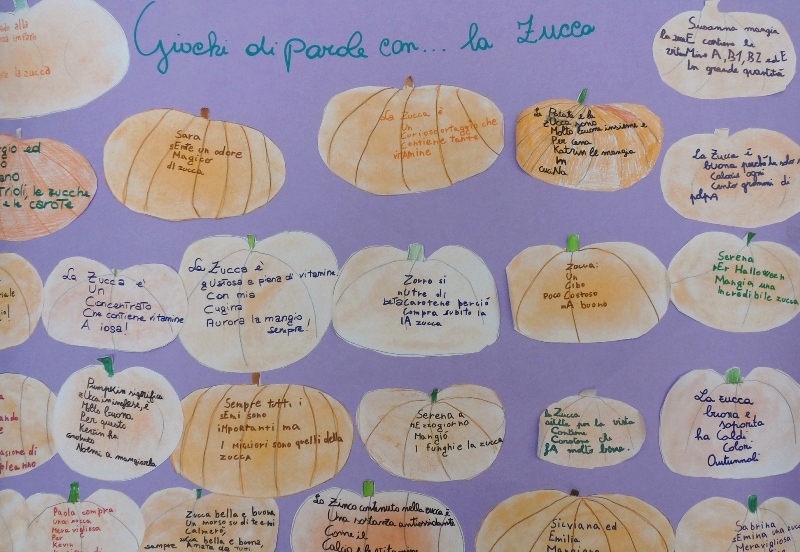 Giochi di parole con... la Zucca
ve la zucca
Susanna mangia
la zuccE contiene le
vitaMine A, B1, B2 ed E
In grande quantità
Sara
sEnte un odore
Magico
di zucca
La Zucca è
Un
Curioso ortaggio che
contiene tante
vitAmine
La Patata e la
zUcca sono
Molto buone insieme e
Per cena
Katrin le mangia
In
cuciNa
La Zucca è
buona perchè ha solo
Calorie ogni
Cento grammi di
polpA
gio ed
ano
Trioli, le zucche
e le carote
La Zucca è
Un
Concentrato
Che contiene vitamine
A iosa!
La Zucca è
gUstosa e piena di vitamine.
Con mia
Cugina
Aurora la mangio
sempre!
Zorro si
nUtre di
betaCarotene perciò
Compra subito la
lA zucca
Zucca:
Un
Cibo
poco Costoso
mA buono
Serena
pEr Halloween
Mangia una
Incredibile zucca
Pumpkin significa
zUcca in inglese, è
Molto buona
Per questo
Kevin ha
Noemi a mangiarla
Sempre tutti i
sEmi sono
iMportanti ma
I migliori sono quelli della
zucca
Serena a
mEzzogiorno
Mangiò
I funghi e la zucca
la Zucca
Utile per la vista
Contiene
Carotene che
fA molto bene.
La zucca
buona e
saporita
ha Caldi
Colori
Autunnali
ando
asione di
pleanno
Paola compra
una zucca
Meravigliosa
Per
Kevin
Zucca bella e buona,
Un morso su di te e mi
Calmerò,
zucca bella e buona,
sempre Amata da tutti
Lo Zinco contenuto nella zucca è
Una sostanza antiossidante
Come il
Calcio e la vitamina
Silviana ed
Emilia
Mangiano
Sabrina
Emina una zucca
Meravigliosa